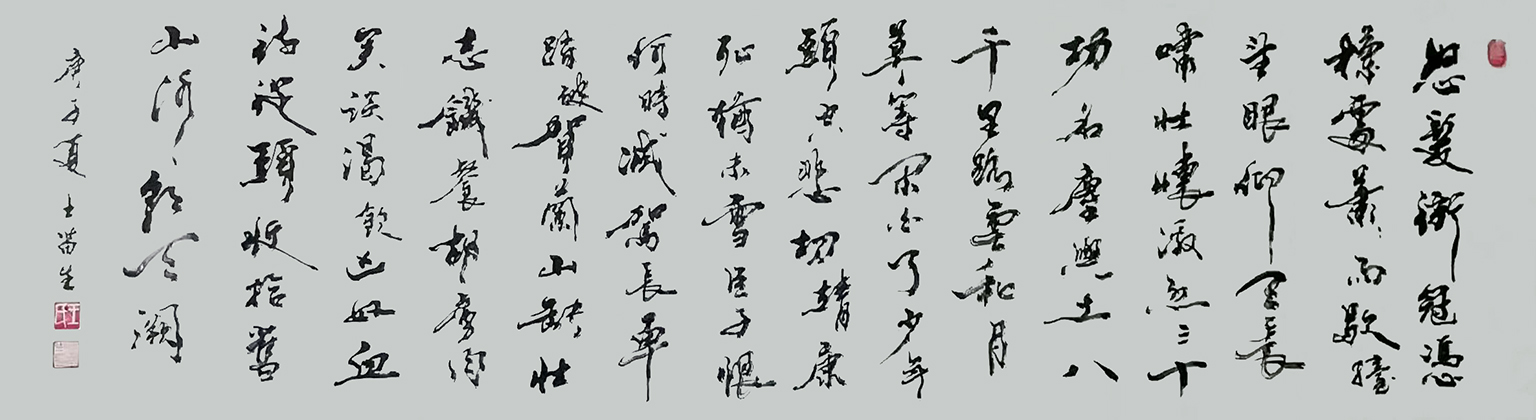 怒髮衝冠憑
欄處蕭雨歇擡
望眼仰天長
嘯壯懷激烈三十
功名塵與土八
千里路雲和月
莫等閑白了少年
頭空悲切靖康
恥猶未雪臣子恨
何時滅駕長車
踏破賀蘭山缺壯
志饑餐胡虜肉
笑談渴飲匈奴血
待從頭收拾舊
山河朝天闕
庚子夏